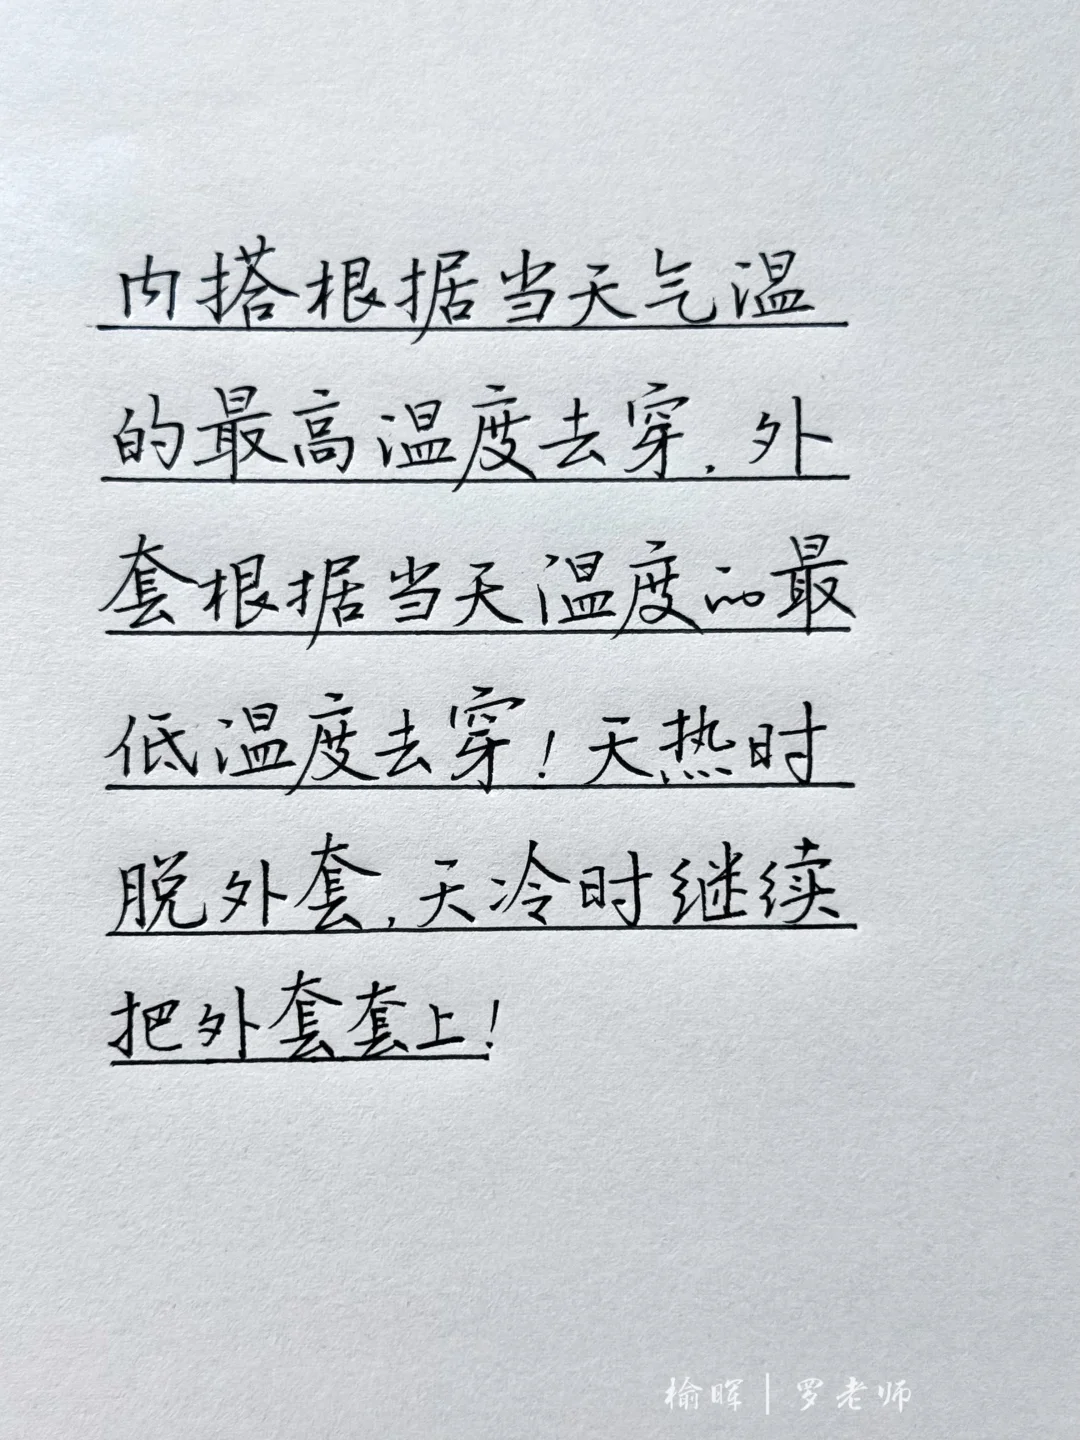 内搭根据当天气温
的最高温度去穿，外
套根据当天温度的最
低温度去穿！天热时
脱外套，天冷时继续
把外套套上！
榆晖|罗老师